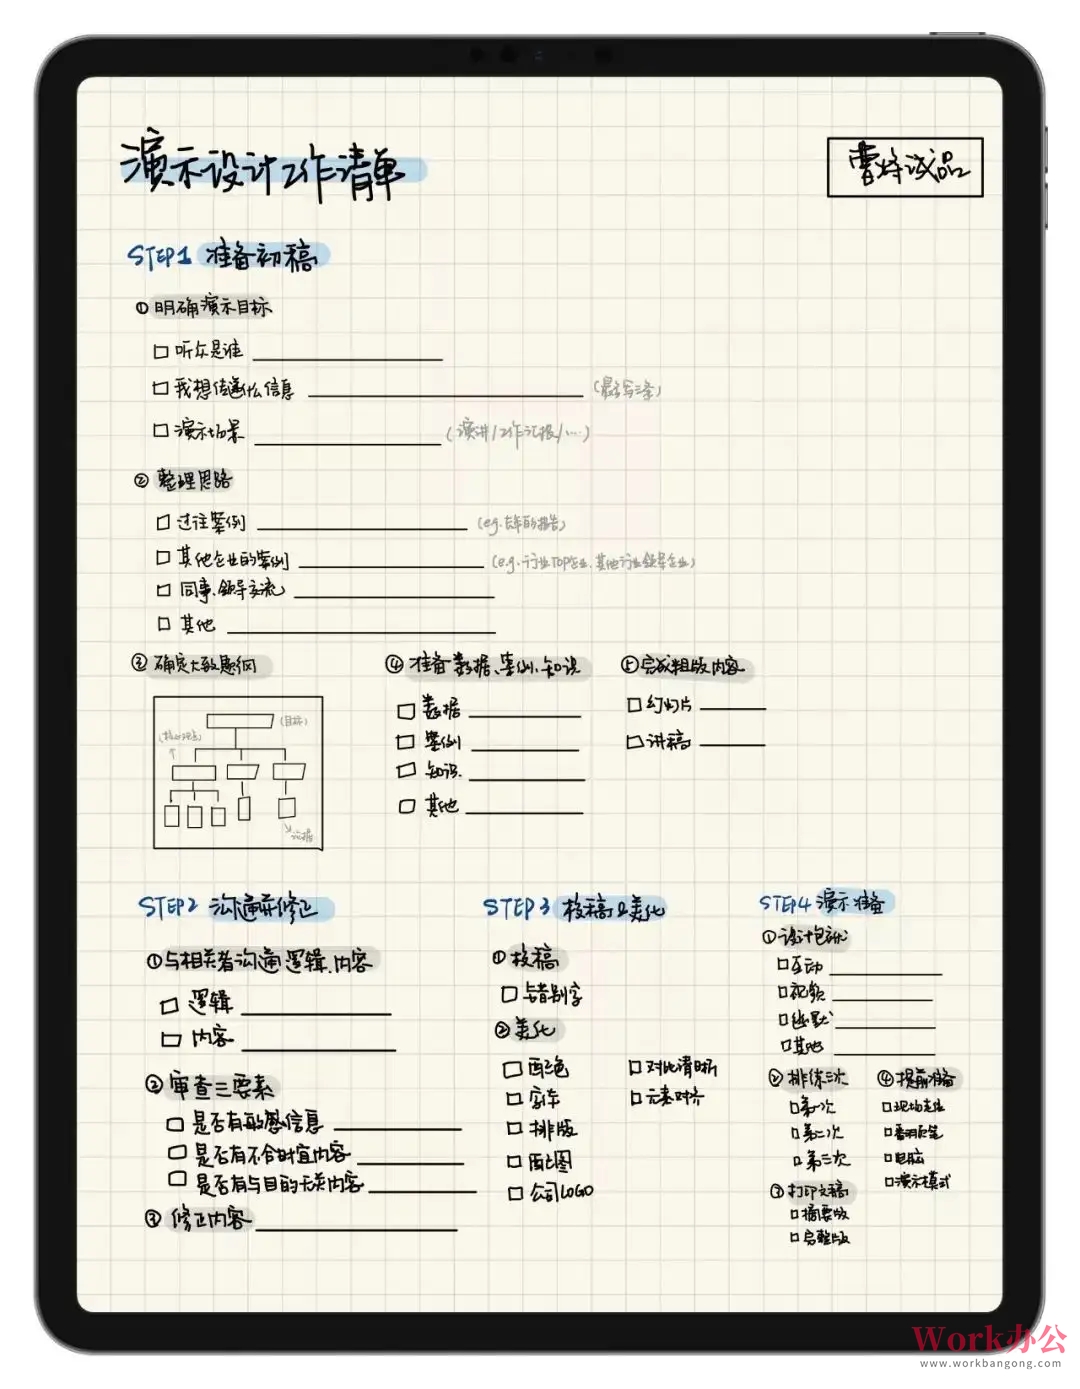 演示设计工作清单
曹将诚品
STEP1 准备初稿
① 明确演示目标
听众是谁
我想传递什么信息 (最多写三条)
演示场景 (演讲/工作汇报/...)
② 整理思路
过往案例 (eg.去年的报告)
其他企业的案例 (eg.行业TOP企业、其他行业领导企业)
同事、领导交流
其他
③ 确定大致提纲
(目标)
(核心观点)
论据
④ 准备数据、案例、知识
数据
案例
知识
其他
⑤ 完成粗版内容
幻灯片
讲稿
STEP2 沟通并修正
① 与相关者沟通逻辑、内容
逻辑
内容
② 审查三要素
是否有敏感信息
是否有不合时宜内容
是否有与目的无关内容
③ 修正内容
STEP3 校稿及美化
① 校稿
错别字
② 美化
配色
字体
排版
配图
公司LOGO
对比清晰
元素对齐
STEP4 演示准备
① 设计包袱
互动
视频
幽默
其他
② 排练三次
第一次
第二次
第三次
③ 打印文稿
摘要版
完整版
④ 提前准备
现场走位
翻页笔
电脑
演示模式
Work办公
www.workbangong.com